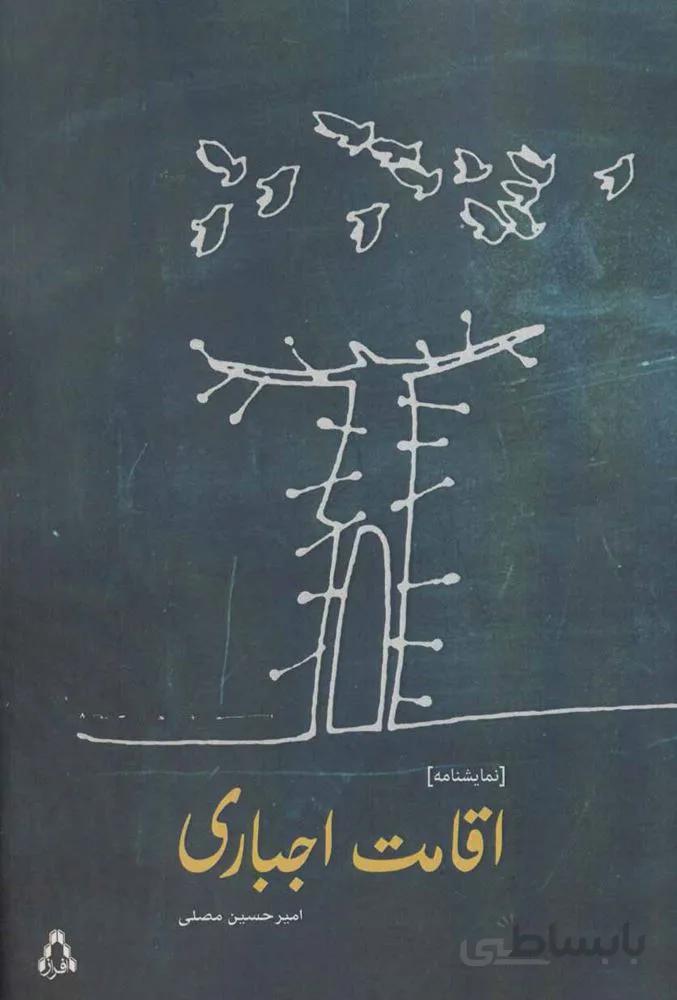 [نمایشنامه]
اقامت اجباری
امیرحسین مصلی
افراز
بابساطی